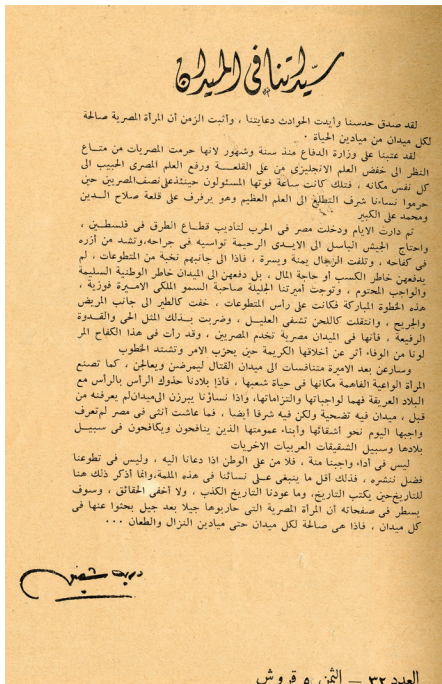 سيداتنا في الميدان
لقد صدق حدسنا وأيدت الحوادث دعايتنا ، وأثبت الزمن أن المرأة المصرية صالحة
لكل ميدان من ميادين الحياة .
لقد عتبنا على وزارة الدفاع منذ سنة وشهور لانها حرمت المصريات من متاع
النظر الى خفض العلم الانجليزى من على القلعة ورفع العلم المصرى الحبيب الى
كل نفس مكانه ، فتلك كانت ساعة فوتها المسئولون حينئذ على نصف المصريين حين
حرموا نساءنا شرف التطلع الى العلم العظيم وهو يرفرف على قلعة صلاح الدين
ومحمد على الكبير
ثم دارت الايام ودخلت مصر فى الحرب لتاديب قطاع الطرق فى فلسطين ،
واحتاج الجيش الباسل الى الايدى الرحيمة تواسيه فى جراحه، وتشد من أزره
فى كفاحه ، وتلفت الرجال يمنة ويسرة ، فاذا الى جانبهم نخبة من المتطوعات ، لم
يدفعهن خاطر الكسب أو حاجة المال ، بل دفعهن الى الميدان خاطر الوطنية السليمة
والواجب المحتوم ، وتوجت أميرتنا الجليلة صاحبة السمو الملكى الاميرة فوزية ،
هذه الخطوة المباركة فكانت على رأس المتطوعات ، خفت كالطير الى جانب المريض
والجريح ، وانتقلت كاللحن تشفى العليل ، وضربت بذلك المثل الحى والقدوة
الرفيعة ، فأنها فى الميدان مصرية تخدم المصريين ، وقد رأت فى هذا الكفاح المر
لونا من الوفاء أثر عن أخلاقها الكريمة حين يحزب الامر وتشتد الخطوب
وسارعن بعد الاميرة متنافسات الى ميدان القتال ليمرضن ويعالجن ، كما تصنع
المرأة الواعية الفاهمة مكانها فى حياة شعبها ، فاذا بلادنا حذوك الرأس بالرأس مع
البلاد العريقة فهما لواجباتها والتزاماتها، واذا نساؤنا يبرزن الى ميدان لم يعرفنه من
قبل ، ميدان فيه تضحية ولكن فيه شرفا أيضا ، فما عاشت أنثى فى مصر لم تعرف
واجبها اليوم نحو أشقائها وأبناء عمومتها الذين ينافحون ويكافحون فى سبيل
بلادها وسبيل الشقيقات العربيات الاخريات
ليس فى أداء واجبنا منة ، فلا من على الوطن اذا دعانا اليه ، وليس فى تطوعنا
فضل ننشره ، فذلك أقل ما ينبغى على نسائنا فى هذه الملمة، وانما أذكر ذلك هنا
للتاريخ حين يكتب التاريخ، وما عودنا التاريخ الكذب ، ولا أخفى الحقائق ، وسوف
يسطر فى صفحاته أن المرأة المصرية التى حاربوها جيلا بعد جيل بحثوا عنها فى
كل ميدان ، فاذا هى صالحة لكل ميدان حتى ميادين النزال والطعان ...
درية شفيق
العدد ٣٢ — الثمن ٥ قروش